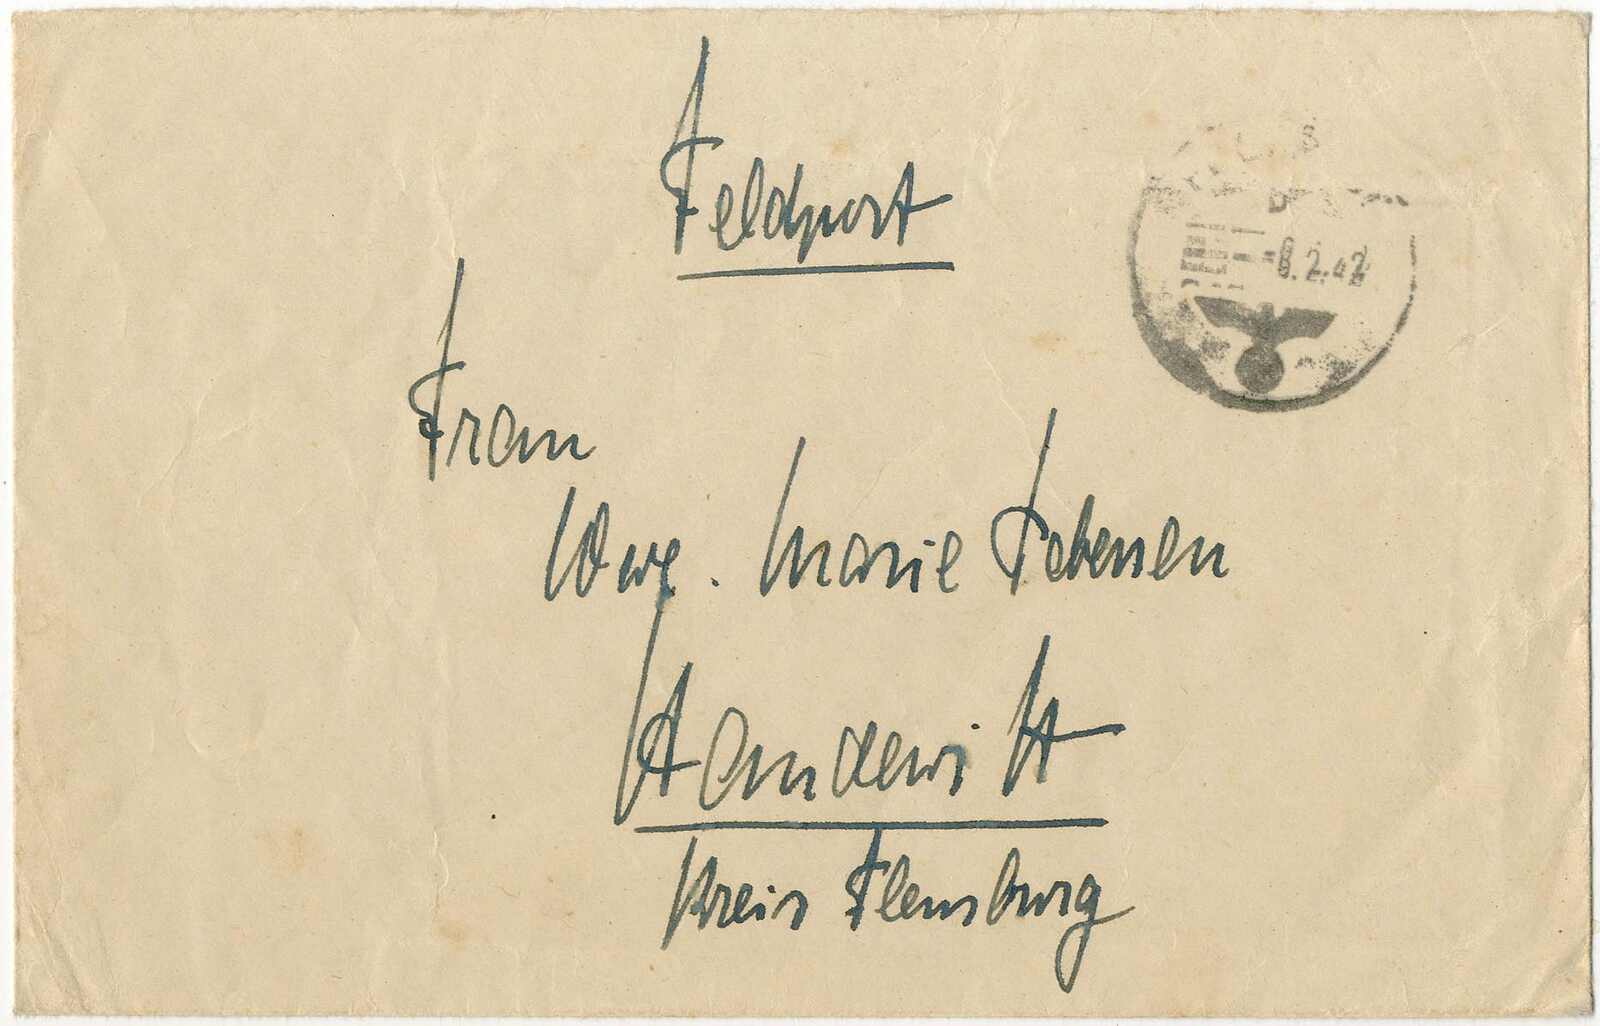 Feldpost
8.2.42
Frau
Wwe. Marie Tebensen
Handewitt
Kreis Flensburg